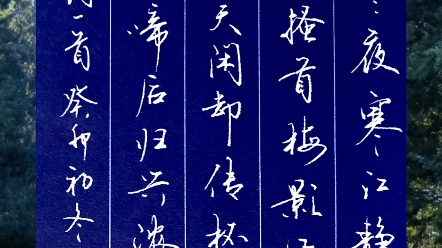 夜寒江静
搔首梅影
天闲却传杯
啼后归兴浓
一首癸卯初冬